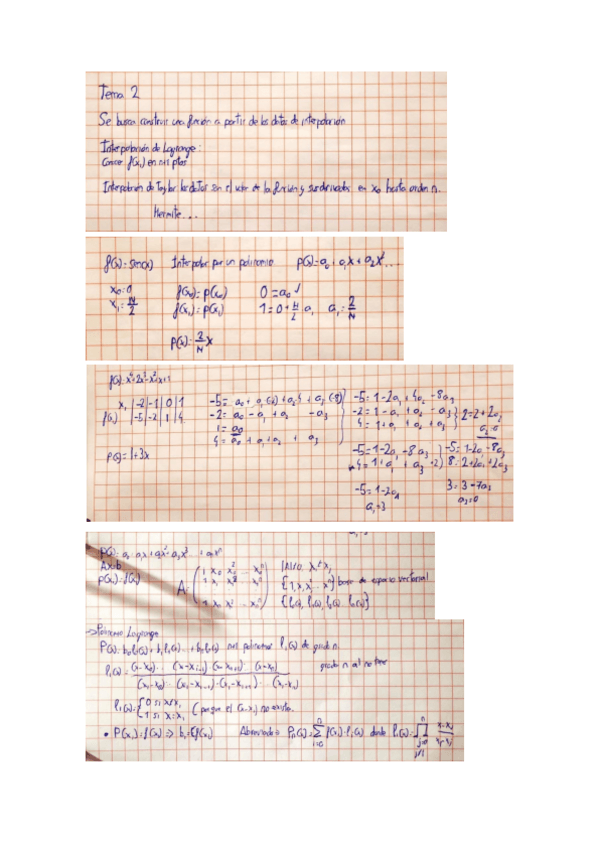 Tema 2
Se busca construir una función a partir de los datos de interpolación
Interpolación de Lagrange:
Conocer f(xi) en n+1 ptos
Interpolación de Taylor los datos son el valor de la función y sus derivadas en x0 hasta orden n.
Hermite...
f(x)=sen(x) Interpolar por un polinomio p(x)=a0+a1x+a2x²...
x0=0 f(x0)=p(x0) 0=a0 ✓
x1=π/2 f(x1)=p(x1) 1=0+π/2 a1 a1=2/π
p(x)=2/π x
xi | -2 | -1 | 0 | 1
f(xi) | -5 | -2 | 1 | 4
p(x)=1+3x
-5= a0+a1(-2)+a2 4+a3(-8)
-2= a0-a1+a2-a3
1=a0
4=a0+a1+a2+a3
-5=1-2a1+4a2-8a3
-2=1-a1+a2-a3
4=1+a1+a2+a3
2=2+2a2
a2=0
-5=1-2a1-8a3
4=1+a1+a3 ·2)
-5=1-2a1-8a3
8=2+2a1+2a3
-5=1-2a1
a1=3
3=3-7a3
a3=0
Ax=b
p(xi)=f(xi)
A=
1 x0 x0² ... x0ⁿ
{1,x,x²...xⁿ} base de espacio vectorial
→ Polinomio Lagrange
P(x)=b0l0(x)+b1l1(x)...+bnln(x) n+1 polinomios li(x) de grado n.
li(x)=(x-x0)...(x-xi-1)(x-xi+1)...(x-xn)
(xi-x0)...(xi-xi-1)(xi-xi+1)...(xi-xn)
grado n al no tener
0 si x≠xi
1 si x=xi (porque el (x-xi) no existe.
• P(xi)=f(xi) ⇒ bi=f(xi) Abreviado→ Pn(x)=∑ f(xi)·li(x) donde li(x)=∏ x-xj / xi-xj